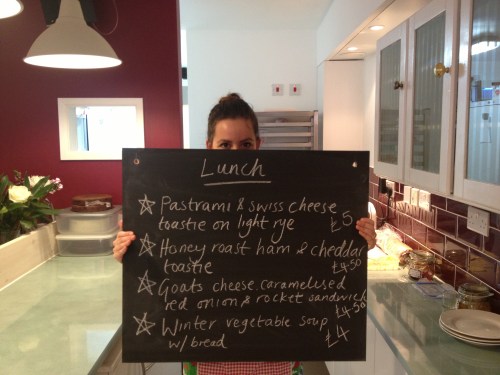 Lunch
☆ Pastrami & swiss cheese
toastie on light rye £5
☆ Honey roast ham & cheddar
toastie £4.50
☆ Goats cheese, caramelised
red onion & rocket sandwich
£4.50
☆ Winter vegetable soup
w/ bread £4